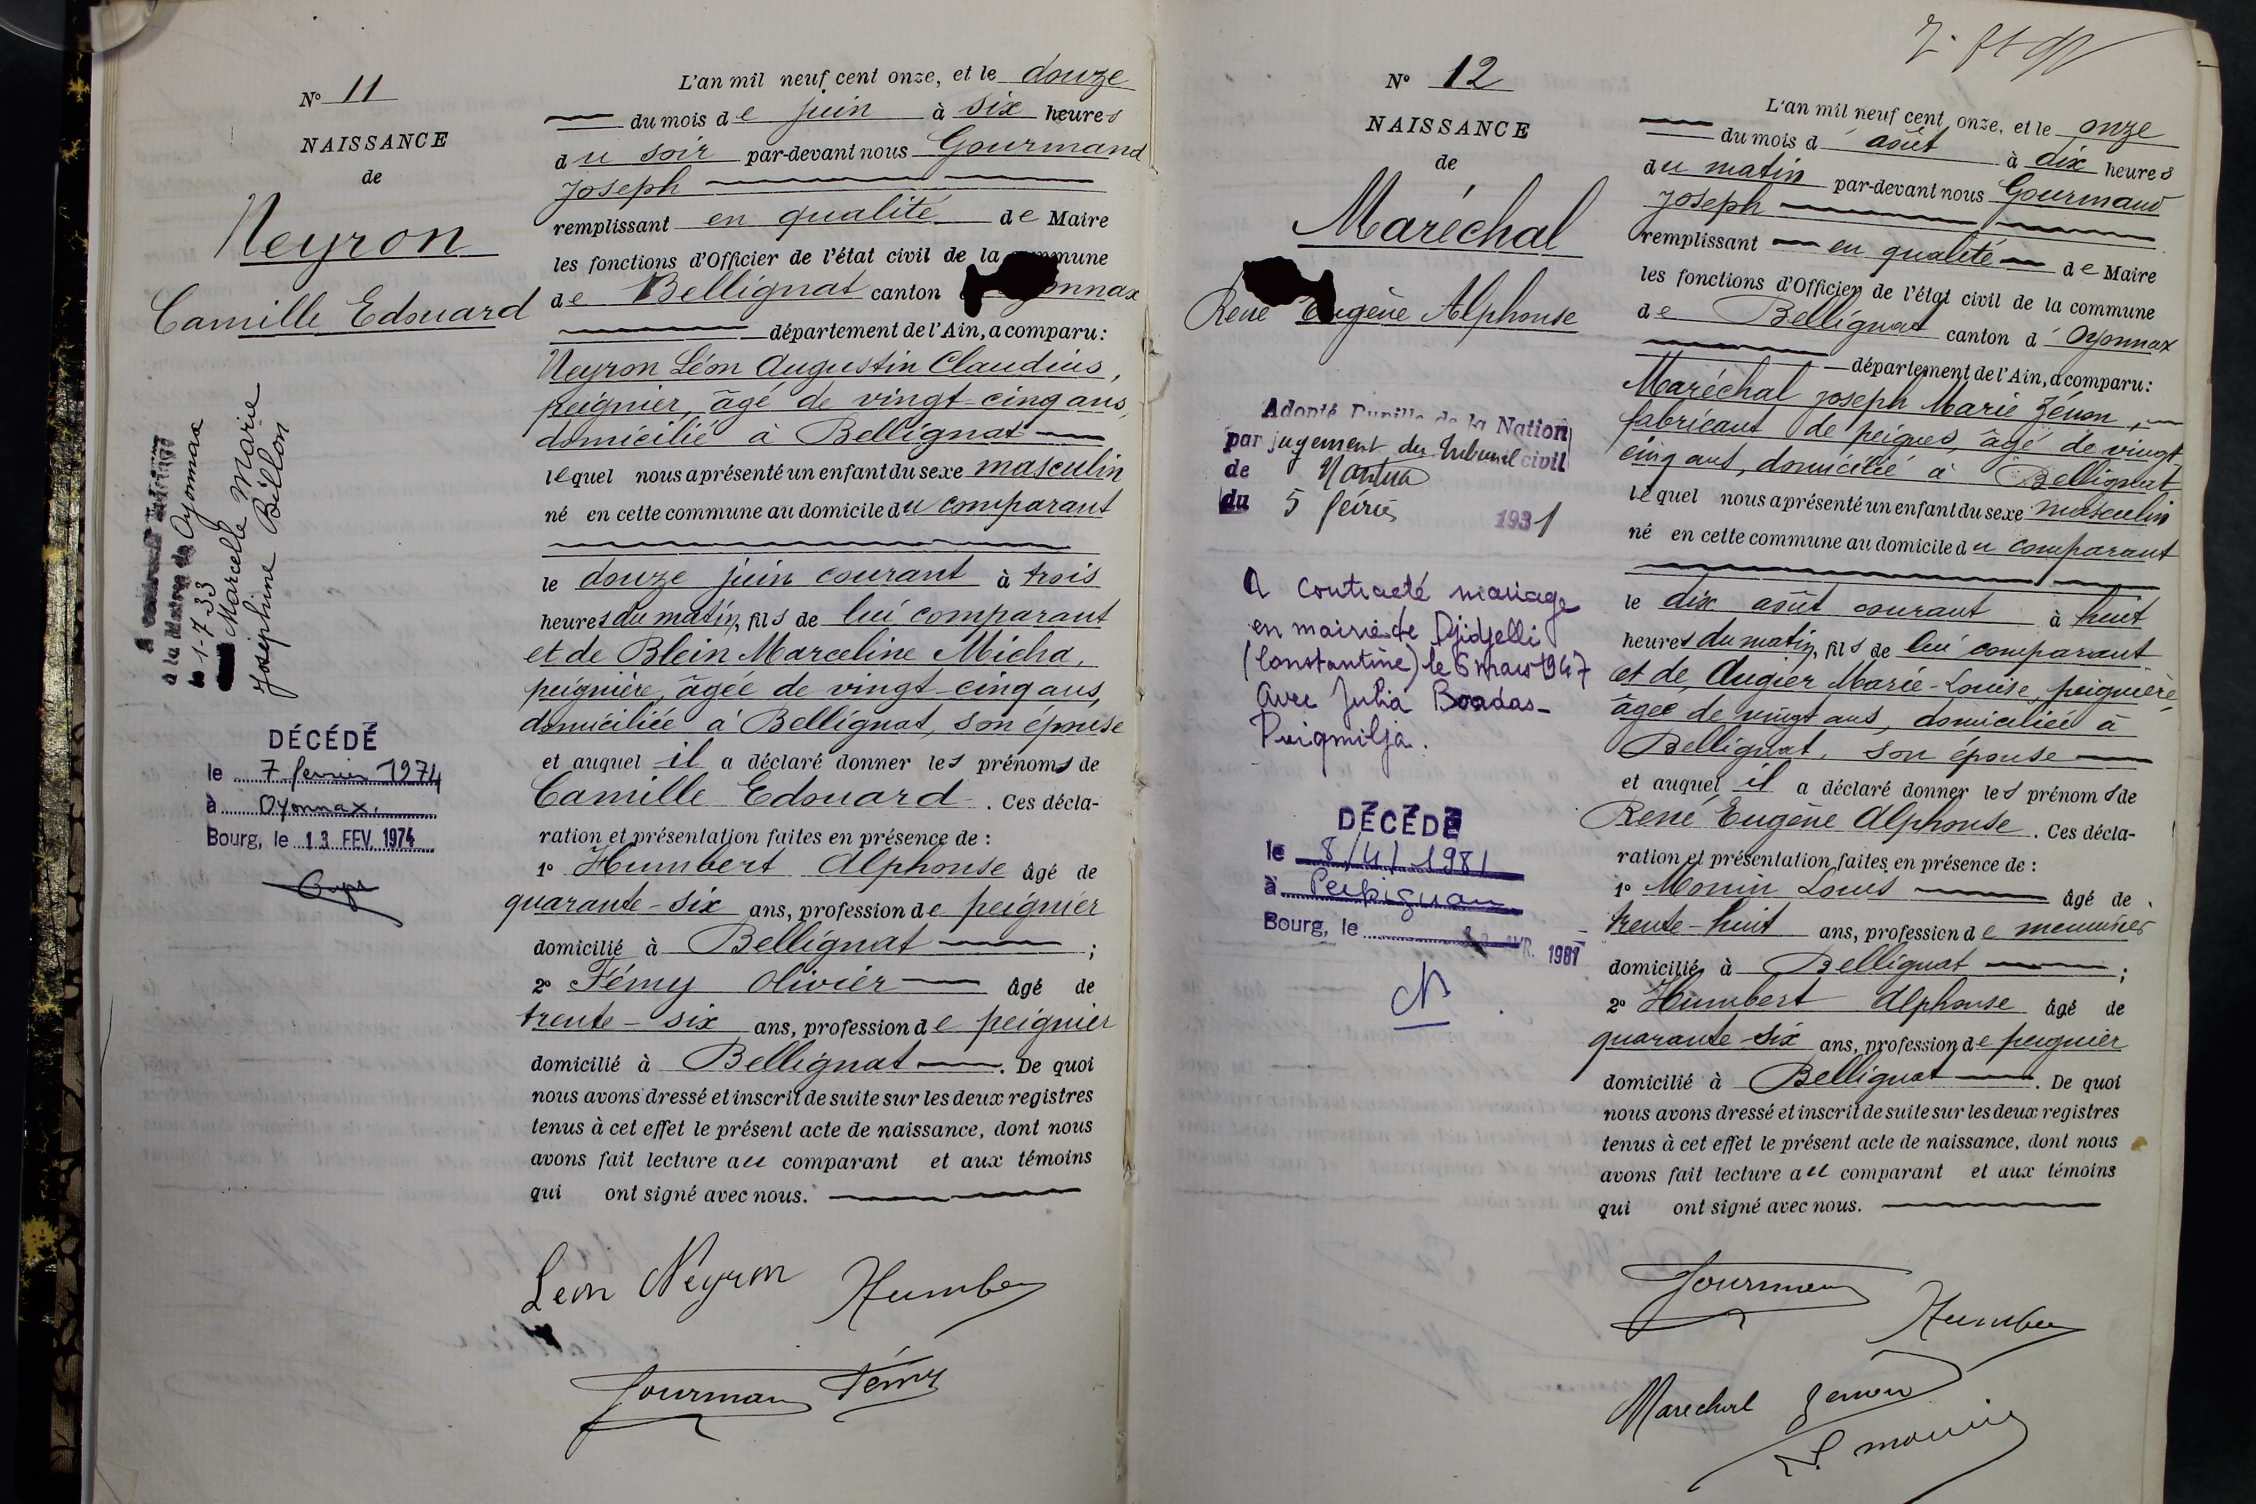 N° 11
NAISSANCE
de
Neyron
Camille Edouard
A contracté mariage
à la Mairie de Oyonnax
le 1-7-33
Marcelle Marie
Joséphine Billon
DÉCÉDÉ
le 7 fevrier 1974
à Oyonnax.
Bourg, le 13 FEV. 1974
L'an mil neuf cent onze, et le douze
du mois de juin à six heures
du soir par-devant nous Gourmand
Joseph
remplissant en qualité de Maire
les fonctions d'Officier de l'état civil de la commune
de Bellignat canton
département de l'Ain, a comparu:
Neyron Léon Augustin Claudius,
peignier, âgé de vingt-cinq ans,
domicilié à Bellignat
lequel nous a présenté un enfant du sexe masculin
né en cette commune au domicile du comparant
le douze juin courant à trois
heures du matin, fils de lui comparant
et de Blein Marceline Micha,
peignière, âgée de vingt-cinq ans,
domiciliée à Bellignat, son épouse
et auquel il a déclaré donner les prénoms de
Camille Edouard. Ces décla-
ration et présentation faites en présence de :
1° Humbert Alphonse âgé de
quarante-six ans, profession de peignier
domicilié à Bellignat ;
2° Fémy Olivier âgé de
trente-six ans, profession de peignier
domicilié à Bellignat. De quoi
nous avons dressé et inscrit de suite sur les deux registres
tenus à cet effet le présent acte de naissance, dont nous
avons fait lecture au comparant et aux témoins
qui ont signé avec nous.
Leon Neyron Humbert
Gourmand Fémy
N° 12
NAISSANCE
de
Maréchal
René Eugène Alphonse
Adopté Pupille de la Nation
par jugement du tribunal civil
de Nantua
du 5 février 1931
A contracté mariage
en mairie de Djidjelli
(Constantine) le 6 mars 1947
avec Julia Boadas-
Puigmilja.
DÉCÉDÉ
le 8/4/1981
à Perpignan
Bourg, le AVR. 1981
L'an mil neuf cent onze, et le onze
du mois d'août à dix heures
du matin par-devant nous Gourmand
Joseph
remplissant en qualité de Maire
les fonctions d'Officier de l'état civil de la commune
de Bellignat canton d'Oyonnax
département de l'Ain, a comparu:
Maréchal Joseph Marie Zénon,
fabricant de peignes, âgé de vingt
cinq ans, domicilié à Bellignat
lequel nous a présenté un enfant du sexe masculin
né en cette commune au domicile du comparant
le dix août courant à huit
heures du matin, fils de lui comparant
et de Augier Marie-Louise, peignière,
âgée de vingt ans, domiciliée à
Bellignat, son épouse
et auquel il a déclaré donner les prénoms de
René Eugène Alphonse. Ces décla-
ration et présentation faites en présence de :
1° Monin Louis âgé de
trente-huit ans, profession de menuisier
domicilié à Bellignat ;
2° Humbert Alphonse âgé de
quarante-six ans, profession de peignier
domicilié à Bellignat. De quoi
nous avons dressé et inscrit de suite sur les deux registres
tenus à cet effet le présent acte de naissance, dont nous
avons fait lecture au comparant et aux témoins
qui ont signé avec nous.
Gourmand
Humbert
Marechal Zenon
L. Monin